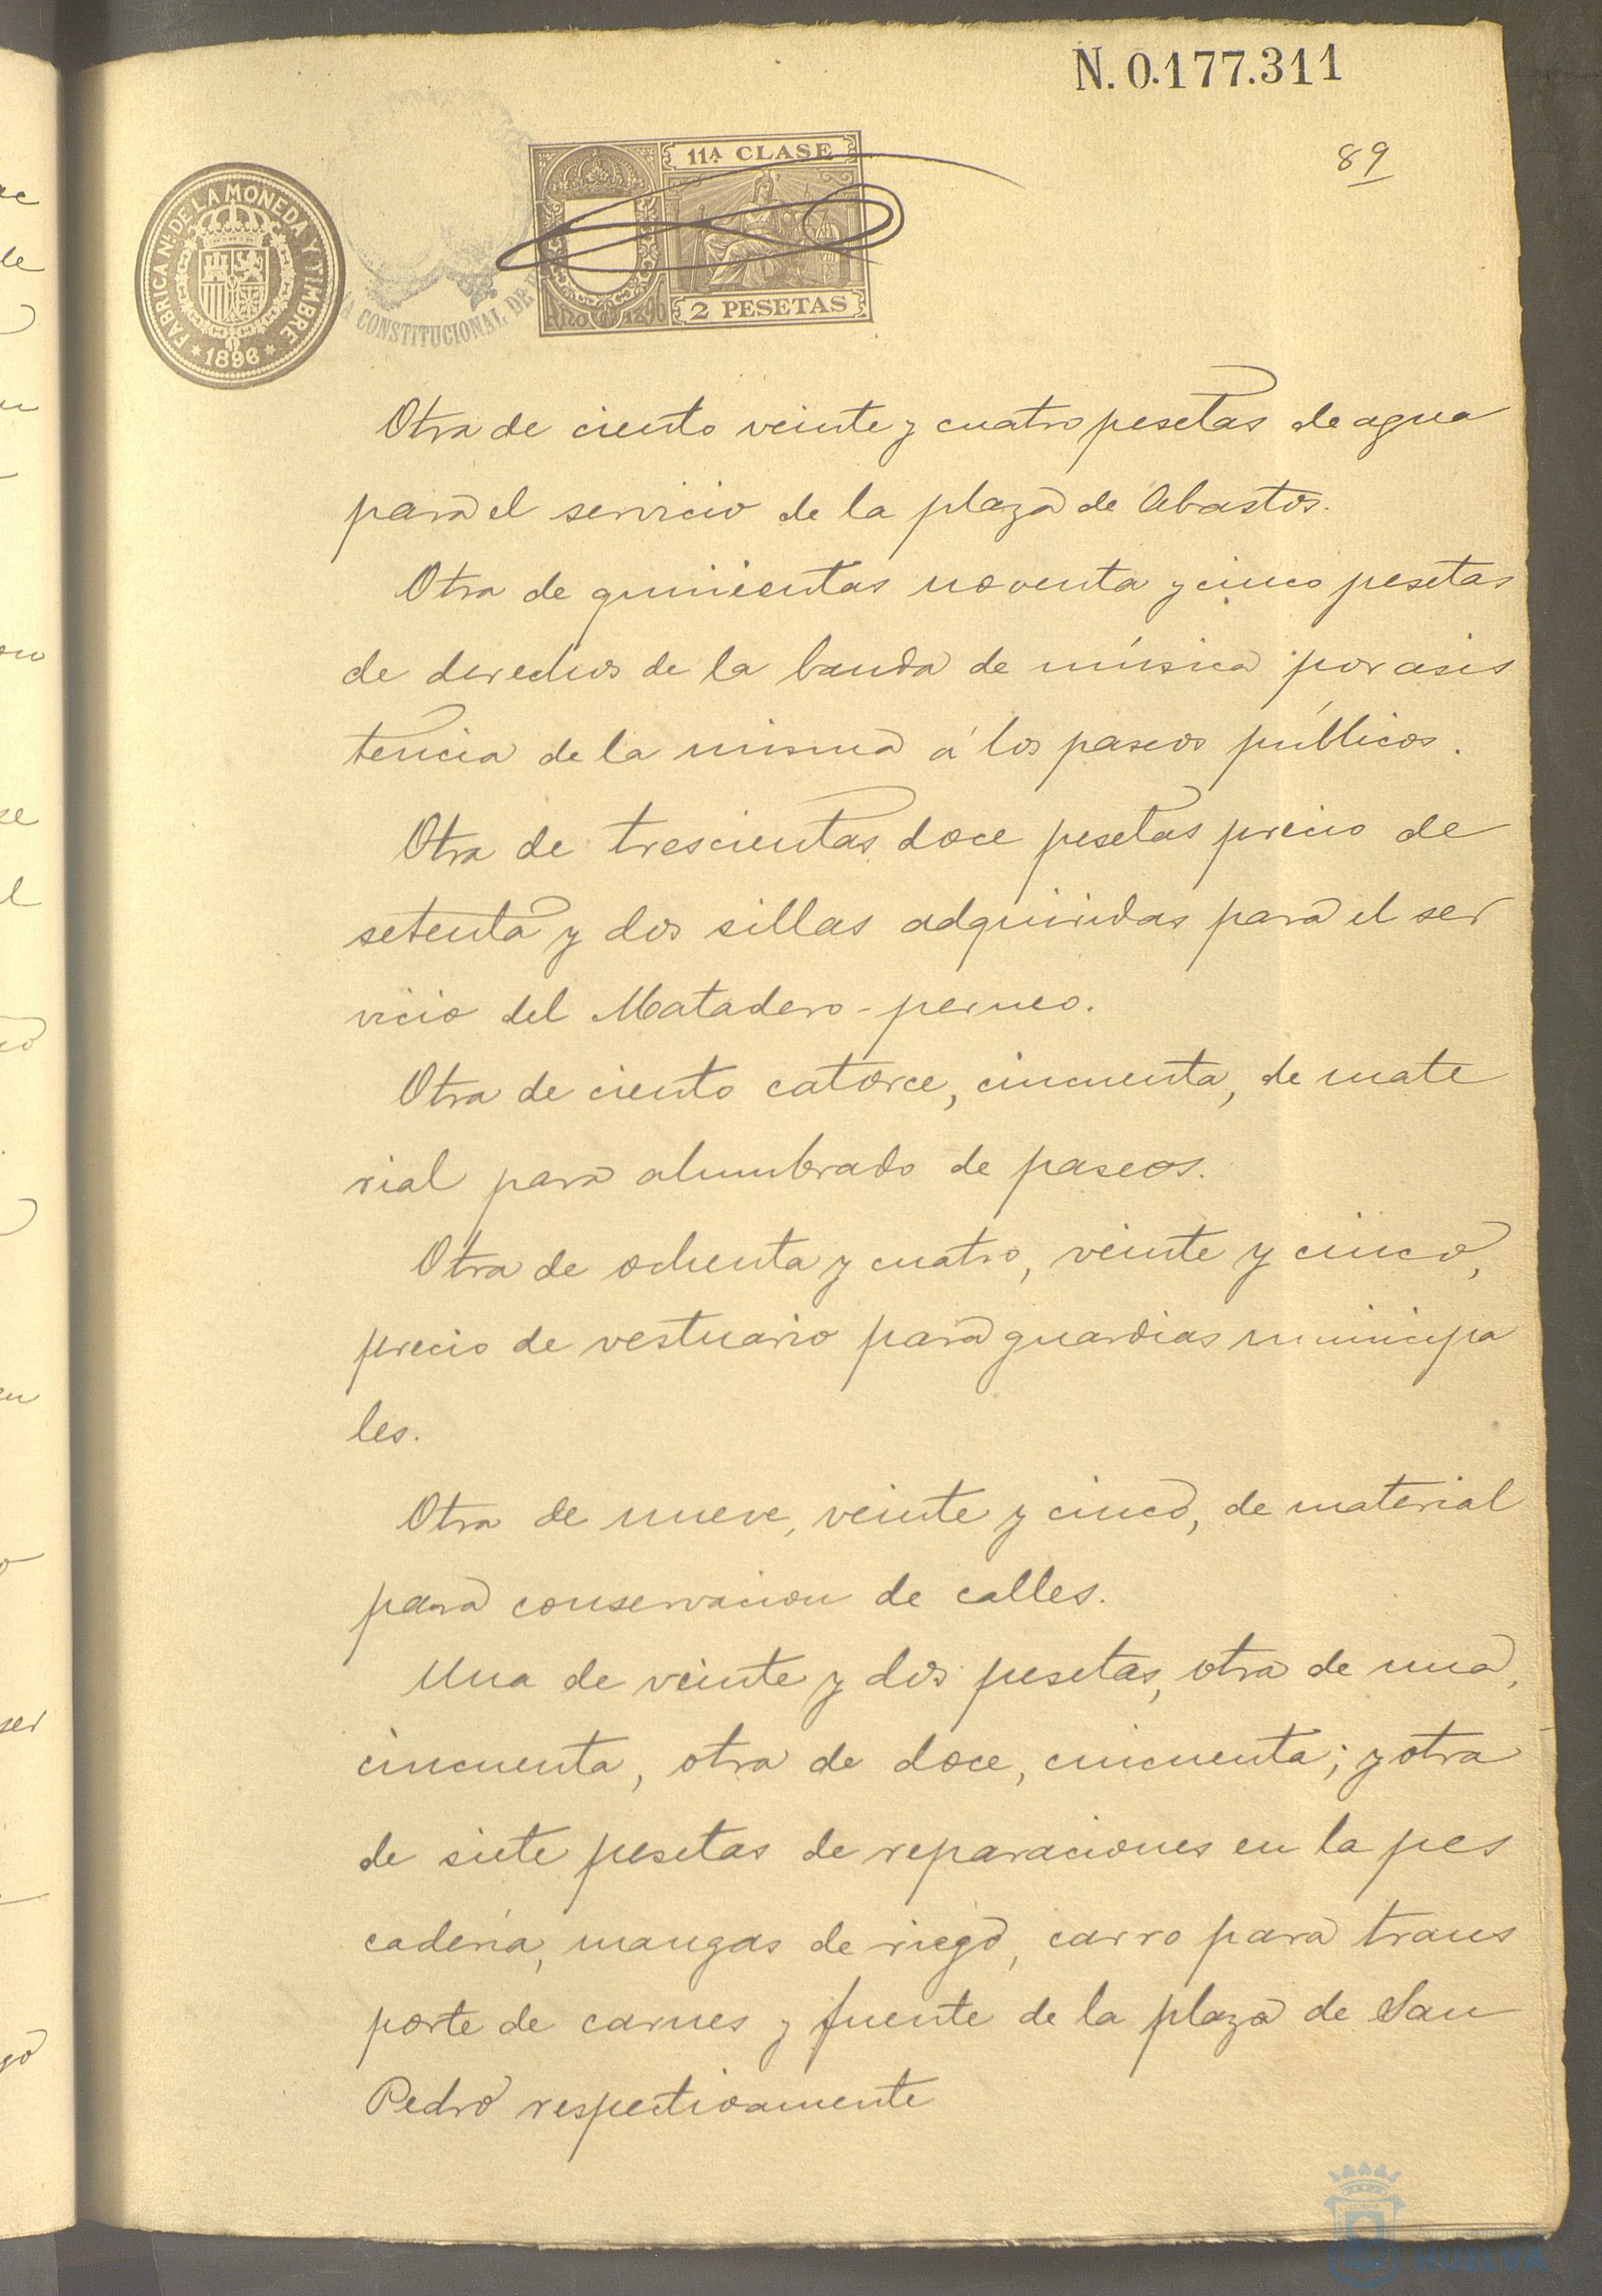 N. 0.177.311
89
FABRICA Nᴸ DE LA MONEDA Y TIMBRE
* 1896 *
CONSTITUCIONAL DE
11ª CLASE
2 PESETAS
Otra de ciento veinte y cuatro pesetas de agua
para el servicio de la plaza de Abastos.
Otra de quinientas noventa y cinco pesetas
de derechos de la banda de música por asis
tencia de la misma á los paseos públicos.
Otra de trescientas doce pesetas precio de
setenta y dos sillas adquiridas para el ser
vicio del Matadero-perneo.
Otra de ciento catorce, cincuenta, de mate
rial para alumbrado de paseos.
Otra de ochenta y cuatro, veinte y cinco,
precio de vestuario para guardias municipa
les.
Otra de nueve, veinte y cinco, de material
para conservacion de calles.
Una de veinte y dos pesetas, otra de una,
cincuenta, otra de doce, cincuenta; y otra
de siete pesetas de reparaciones en la pes
cadería, mangas de riego, carro para trans
porte de carnes y fuente de la plaza de San
Pedro respectivamente
HUELVA